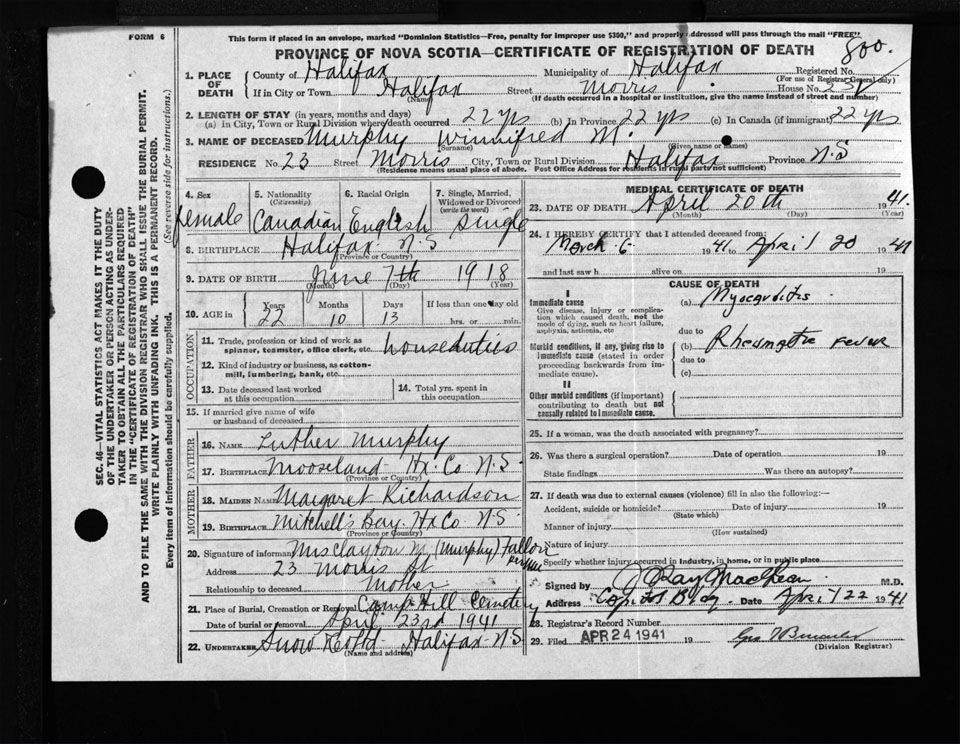 FORM 6
This form if placed in an envelope, marked "Dominion Statistics—Free, penalty for improper use $300," and properly addressed will pass through the mail "FREE."
PROVINCE OF NOVA SCOTIA—CERTIFICATE OF REGISTRATION OF DEATH
800.
1. PLACE OF DEATH County of Halifax Municipality of Halifax Registered No.
(For use of Registrar General only)
If in City or Town Halifax Street Morris House No. 23
(Name) (If death occurred in a hospital or institution, give the name instead of street and number)
2. LENGTH OF STAY (in years, months and days)
(a) in City, Town or Rural Division where death occurred 22 yrs (b) In Province 22 yrs (c) In Canada (if immigrant) 22 yrs
3. NAME OF DECEASED Murphy Winnifred M.
(Surname) (Given name or names)
RESIDENCE No. 23 Street Morris City, Town or Rural Division Halifax Province N.S
(Residence means usual place of abode. Post Office Address for residents in rural parts not sufficient)
4. Sex female
5. Nationality (Citizenship) Canadian
6. Racial Origin English
7. Single, Married, Widowed or Divorced (write the word) Single
8. BIRTHPLACE Halifax N.S
(Province or Country)
9. DATE OF BIRTH June 7th 1918
(Month) (Day) (Year)
10. AGE in Years 22 Months 10 Days 13 If less than one day old hrs. or min.
OCCUPATION
11. Trade, profession or kind of work as spinner, teamster, office clerk, etc. house duties
12. Kind of industry or business, as cotton-mill, lumbering, bank, etc.
13. Date deceased last worked at this occupation
14. Total yrs. spent in this occupation
15. If married give name of wife or husband of deceased
FATHER
16. NAME Luther Murphy
17. BIRTHPLACE Mooseland Hx. Co N.S.
(Province or Country)
MOTHER
18. MAIDEN NAME Margaret Richardson
19. BIRTHPLACE Mitchell's Bay. Hx Co N.S
(Province or Country)
20. Signature of informant Mrs Clayton M. (Murphy) Fallon
Address 23 Morris St
Relationship to deceased Mother
21. Place of Burial, Cremation or Removal Camp Hill Cemetery
Date of burial or removal April 23rd 1941
22. UNDERTAKER Snow & Co Ltd Halifax N.S
(Name and address)
MEDICAL CERTIFICATE OF DEATH
23. DATE OF DEATH April 20th 1941.
(Month) (Day) (Year)
24. I HEREBY CERTIFY that I attended deceased from:
March 6 1941 to April 20 1941
and last saw h alive on 19
CAUSE OF DEATH
I
Immediate cause
Give disease, injury or complication which caused death, not the mode of dying, such as heart failure, asphyxia, asthenia, etc
(a) Myocarditis
due to
Morbid conditions, if any, giving rise to immediate cause (stated in order proceeding backwards from immediate cause).
(b) Rheumatic Fever
due to
(c)
II
Other morbid conditions (if important) contributing to death but not causally related to immediate cause.
25. If a woman, was the death associated with pregnancy?
26. Was there a surgical operation? Date of operation 19
State findings Was there an autopsy?
27. If death was due to external causes (violence) fill in also the following:—
Accident, suicide or homicide? Date of injury 19
(State which)
Manner of injury
(How sustained)
Nature of injury
Specify whether injury occurred in industry, in home, or in public place
Signed by J Ray MacLean M.D.
Address Capitol Bldg. Date April 22 1941
28. Registrar's Record Number
29. Filed APR 24 1941 19
(Division Registrar)
SEC. 46—VITAL STATISTICS ACT MAKES IT THE DUTY
OF THE UNDERTAKER OR PERSON ACTING AS UNDER-
TAKER TO OBTAIN ALL THE PARTICULARS REQUIRED
IN THE "CERTIFICATE OF REGISTRATION OF DEATH"
AND TO FILE THE SAME WITH THE DIVISION REGISTRAR WHO SHALL ISSUE THE BURIAL PERMIT.
WRITE PLAINLY WITH UNFADING INK. THIS IS A PERMANENT RECORD.
Every item of information should be carefully supplied. (See reverse side for instructions.)